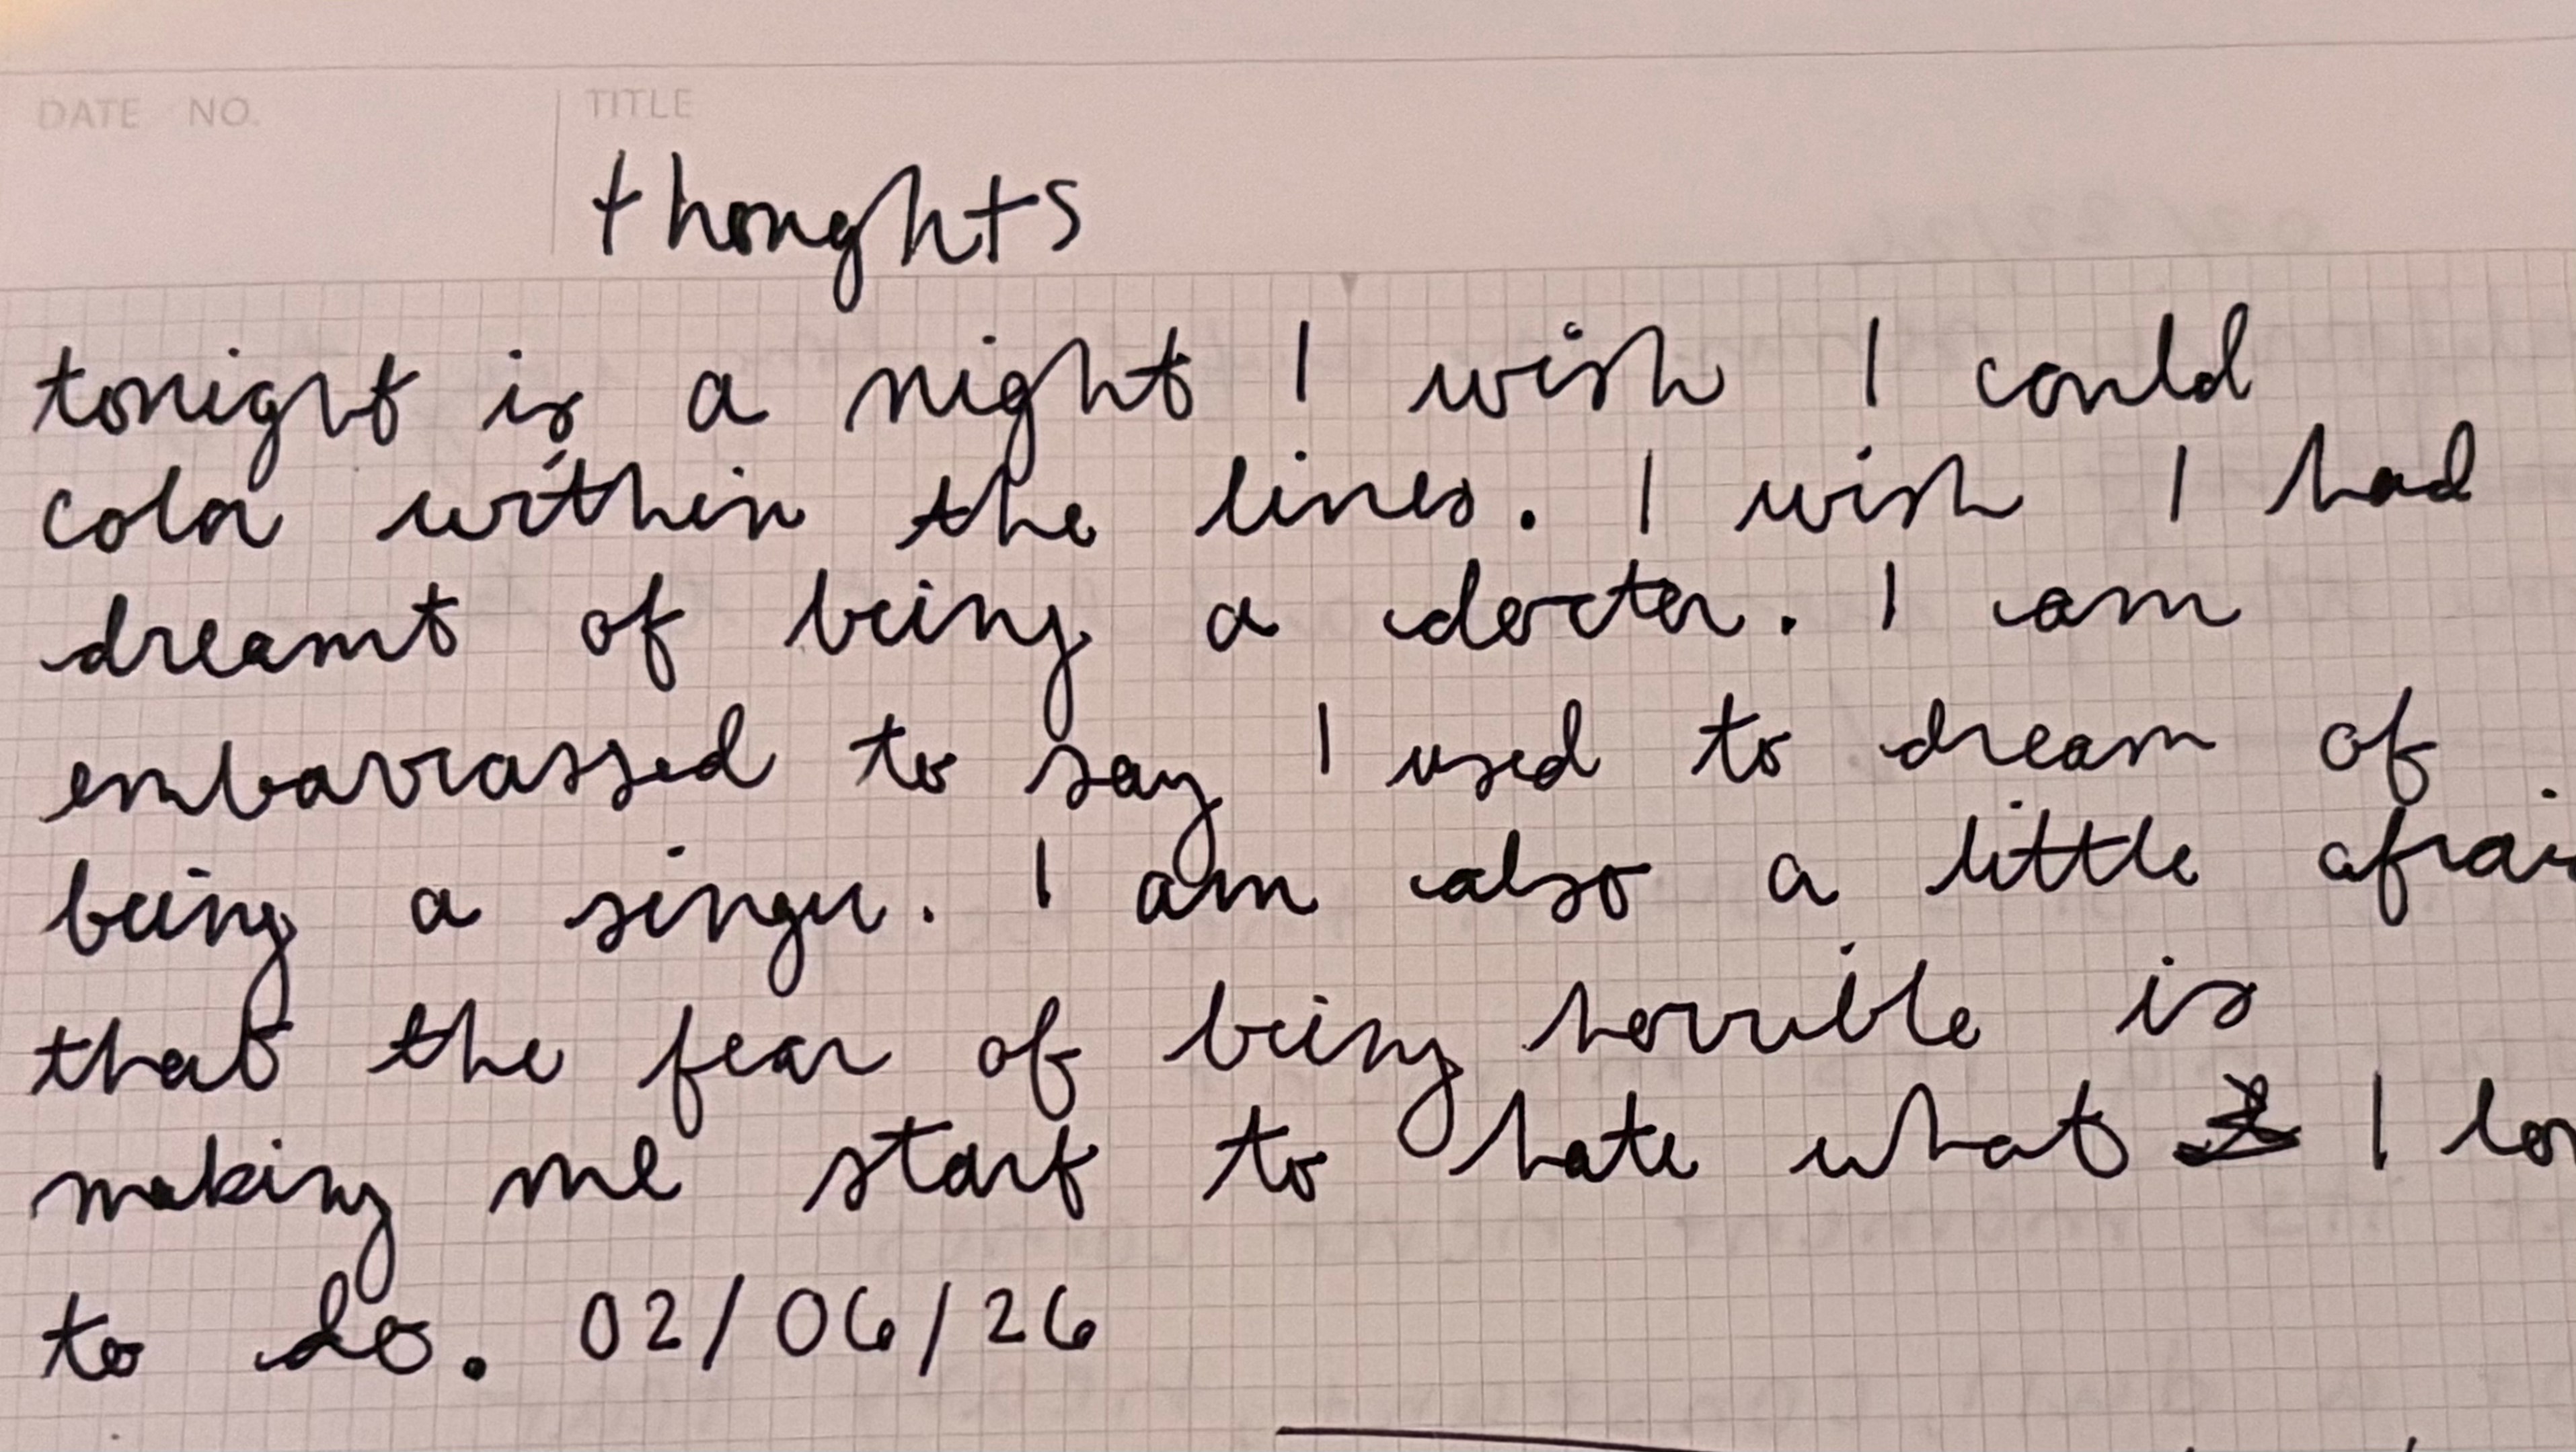 DATE NO. TITLE
thoughts
tonight is a night I wish I could
color within the lines. I wish I had
dreamt of being a docter. I am
embarrassed to say I used to dream of
being a singer. I am also a little afrai
that the fear of being horrible is
making me start to hate what I lo
to do. 02/06/26